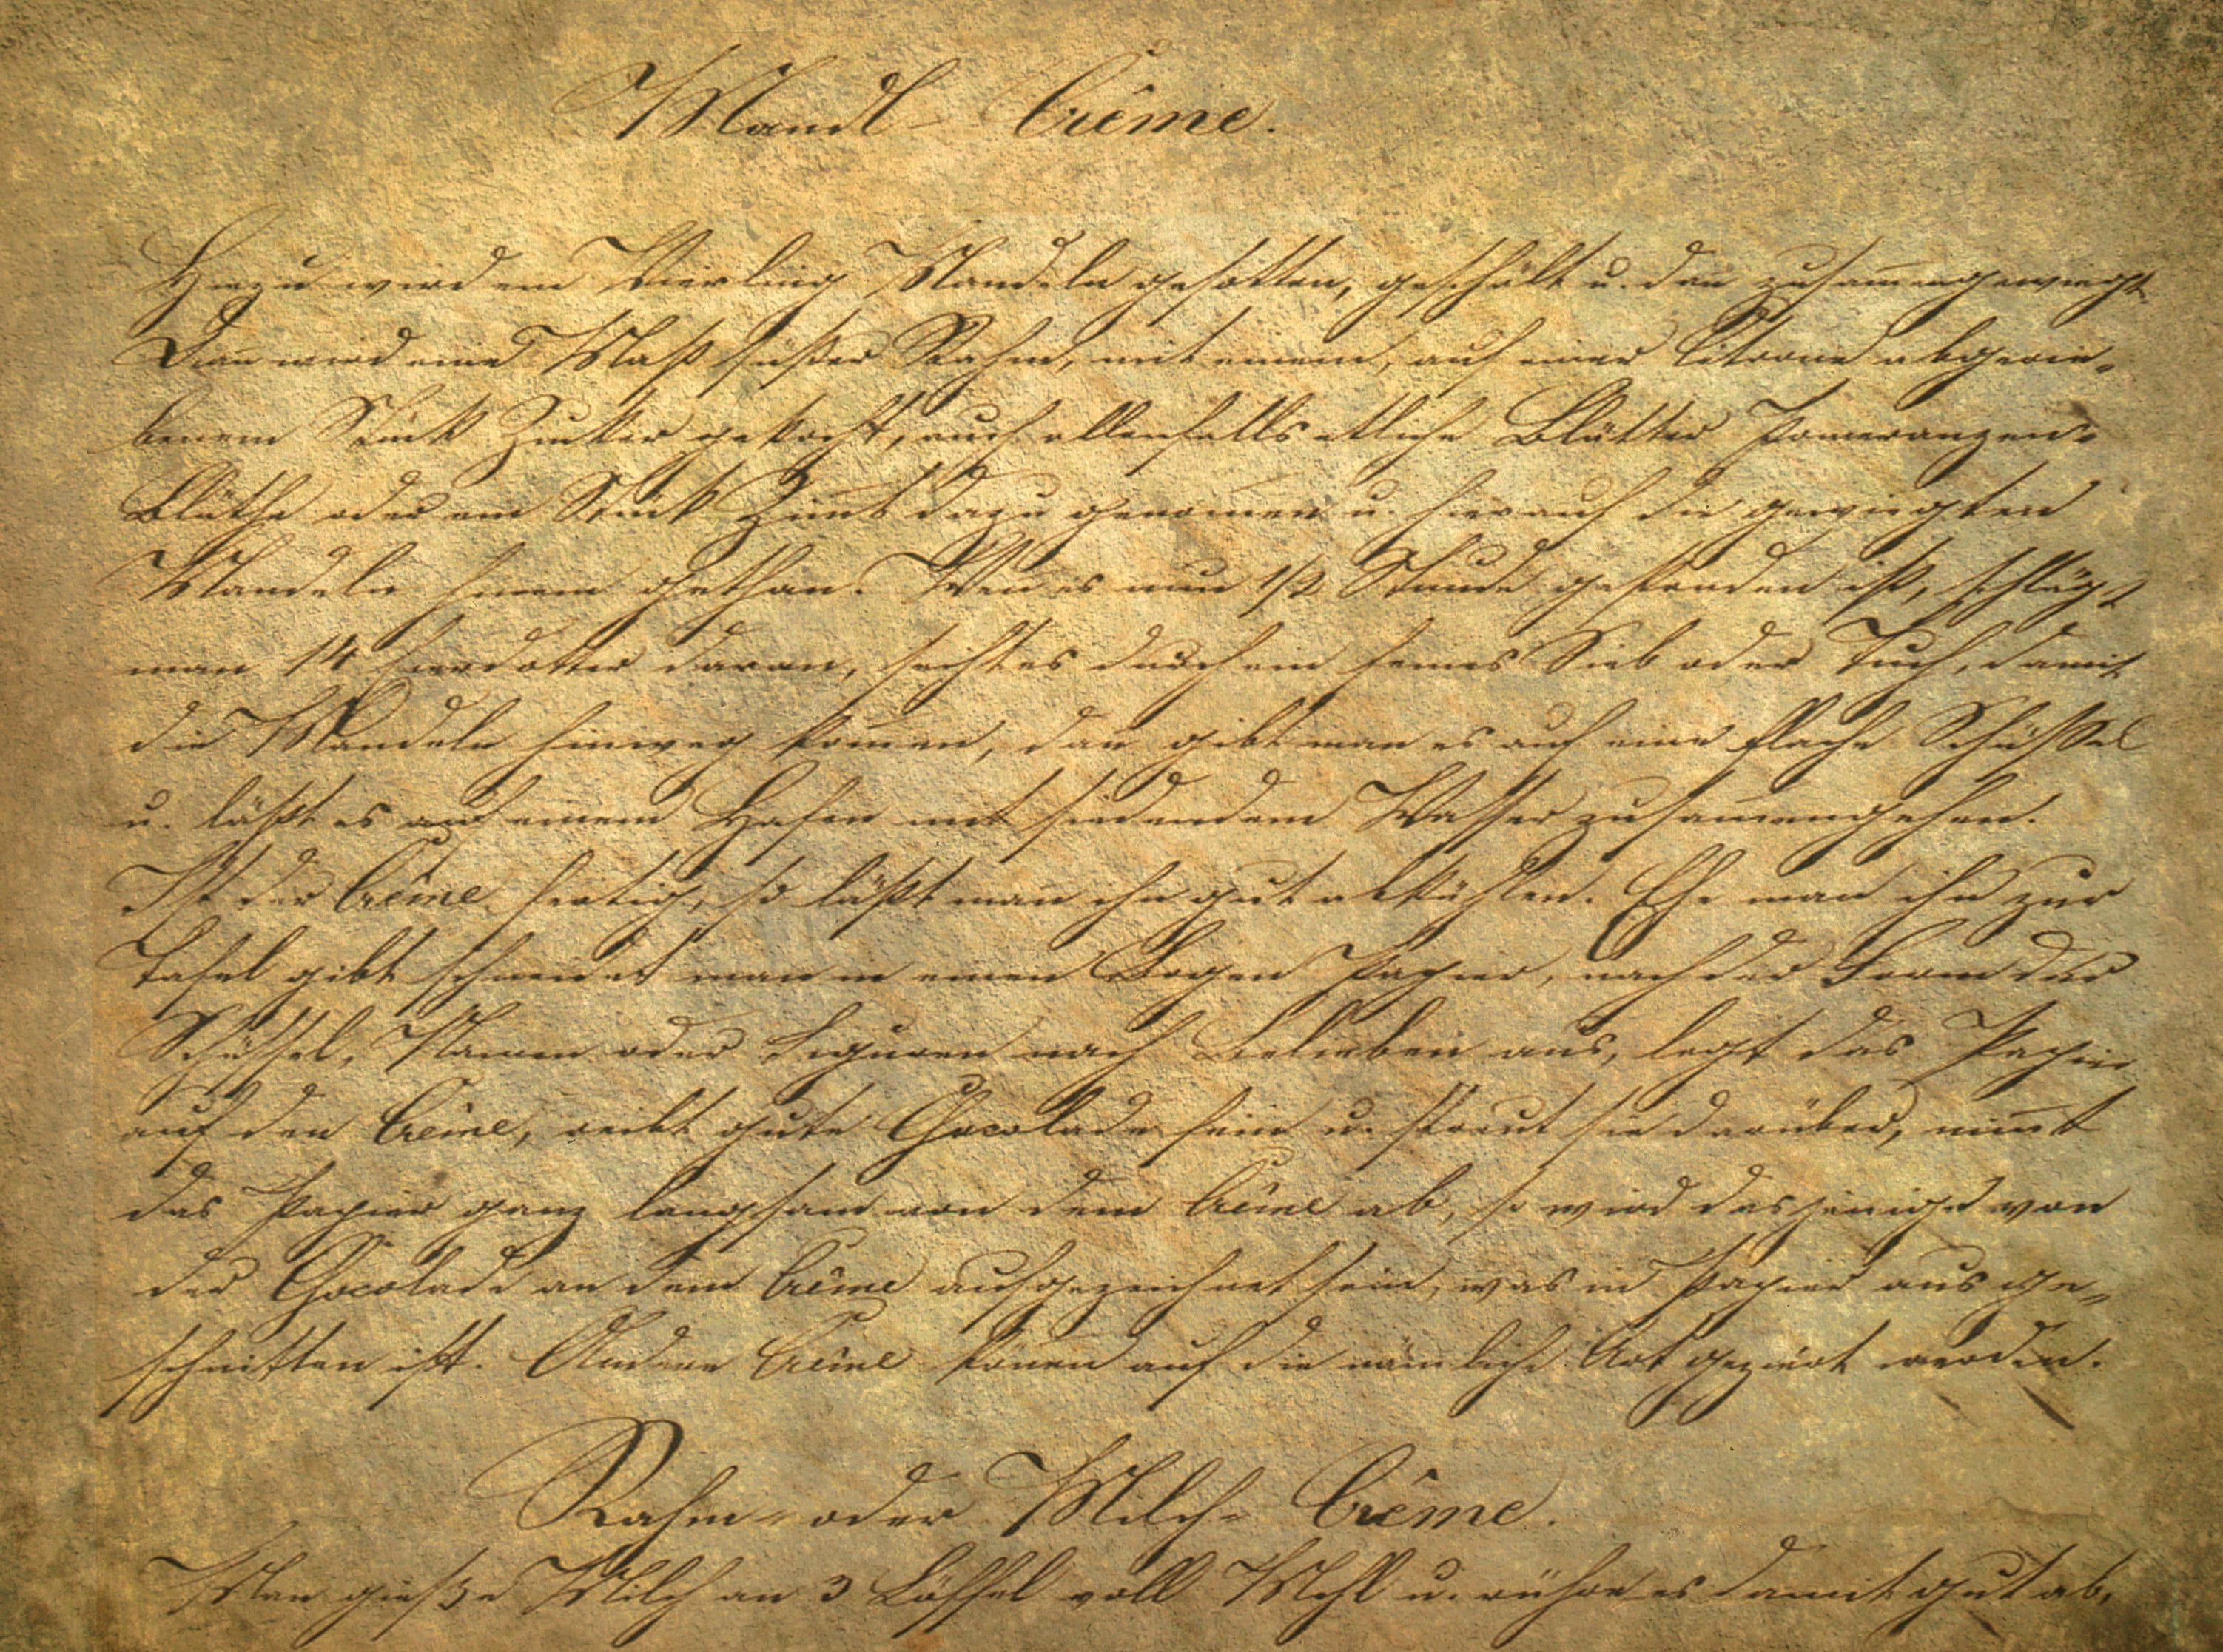 Mandl- Crême.
Hiezu wird ein Vierling Mandeln gesotten, geschält u. dan̄ zusam̄engewiegt
Dan̄ wird eine Maß süßer Rahm, mit einem, auf einer Citrone abgerie-
benem Stück Zucker gekocht, auch allenfalls etliche Blätter Pomeranzen-
Blüthe oder ein Stück Zim̄t dazu genom̄en u. hierauf die gewiegten
Mandeln hinein gethan. Wen̄ es nun Stunde gestanden ist, schlägt
man 14 Eierdotter daran, seiht es durch ein feines Sieb oder Tuch, damit
die Mandeln hinweg kom̄en, dan̄ gibt man es auf eine flache Schüßel
u. läßt es auf einem Hafen mit siedendem Wasser zusam̄engehen.
Ist der Crême fertig, so läßt man ihn gut abkühlen. Ehe man ihn zur
Tafel gibt schneidet man in einen Bogen Papier, nach der Form der
Schüssel, Namen oder Figuren nach Belieben aus, legt das Papier
auf den Crême, reibt gute Chocolade fein u. streut sie darüber, nim̄t
das Papier ganz langsam von dem Crême ab, so wird dasjenige von
der Chocolade an dem Crême aufgezeichnet sein, was in Papier ausge-
schnitten ist. Andere Crême kön̄en auf die nämliche Art geziert werden.
Rahm- oder Milch- Crême.
Man gieße Milch an 3 Löffel voll Mehl u. rühre es damit gut ab,